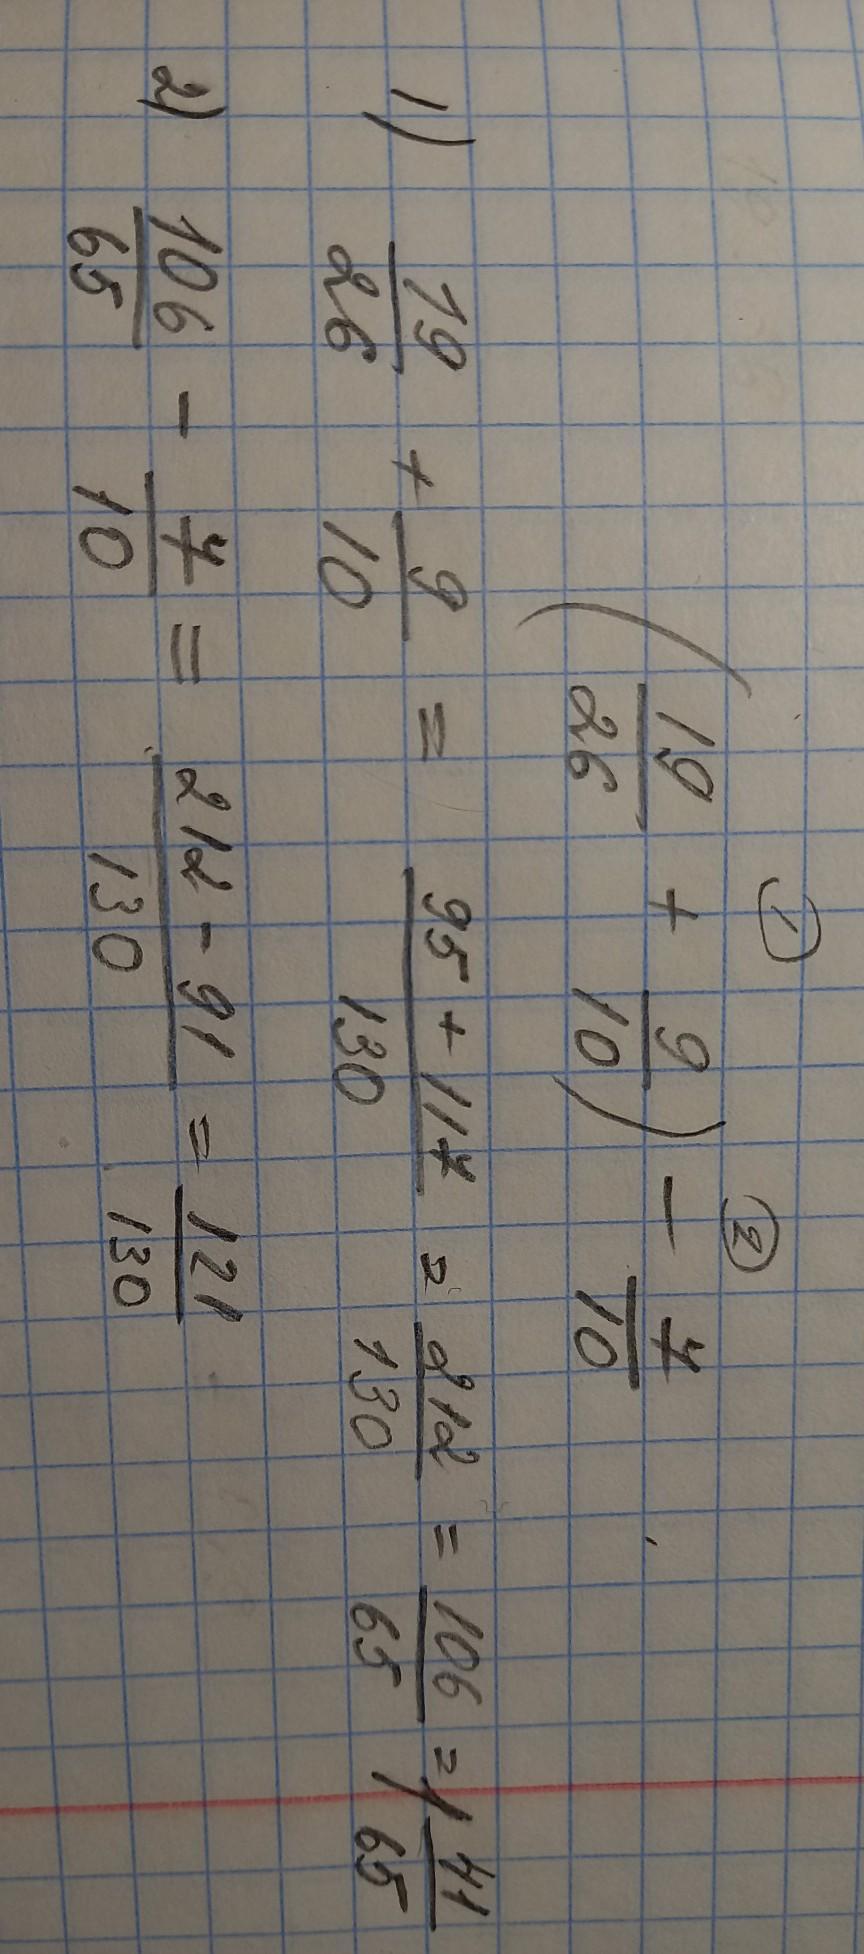 ① ②
(19/26 + 9/10) - 7/10
1) 19/26 + 9/10 = (95 + 117)/130 = 212/130 = 106/65 = 1 41/65
2) 106/65 - 7/10 = (212 - 91)/130 = 121/130